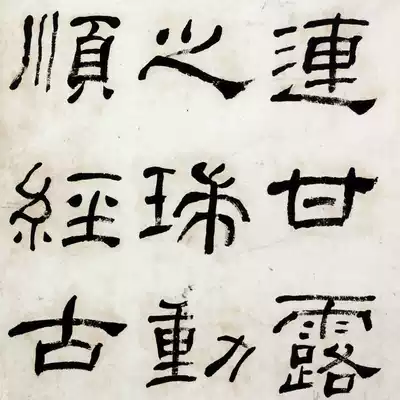 連甘露
之珠動
順經古